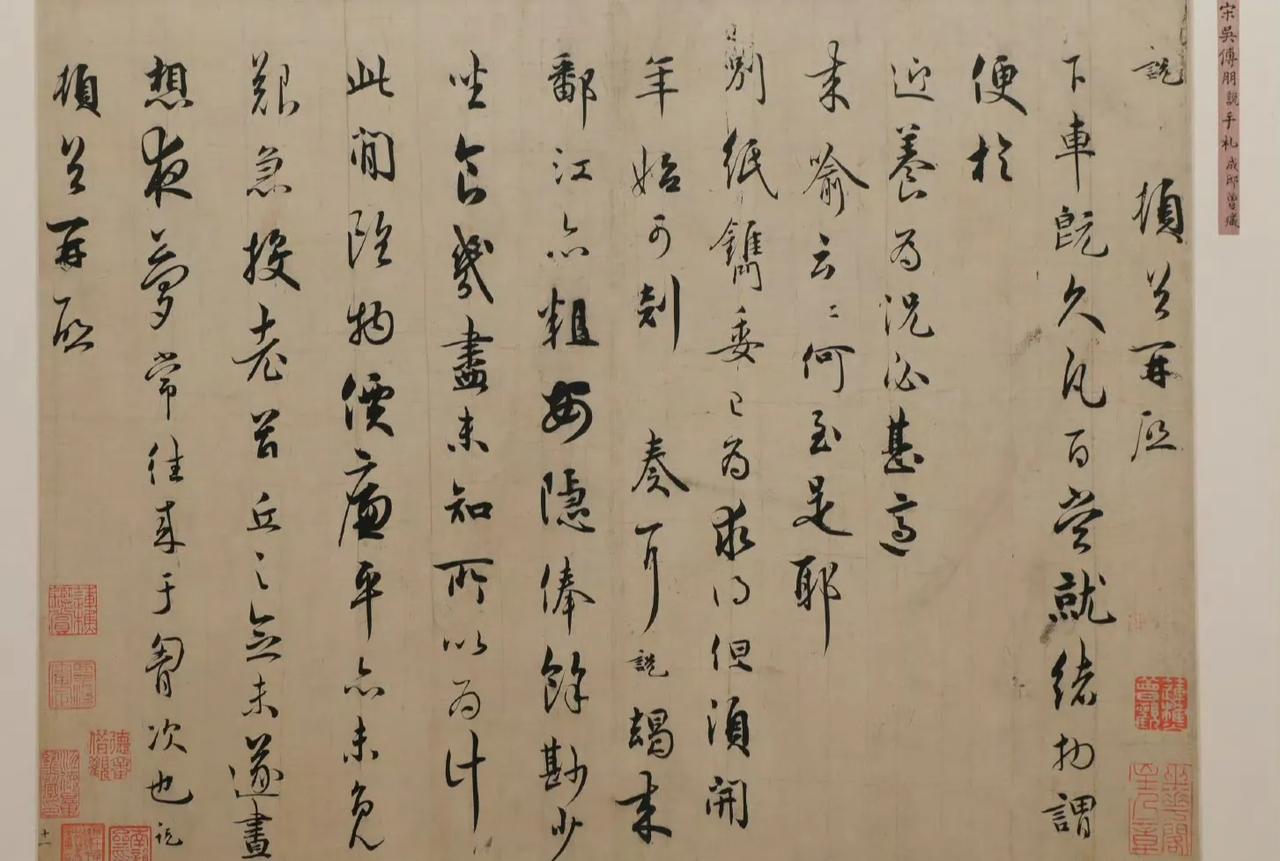 宋吳傅朋說手札 成邸曾藏
說頓首再啓
下車既久凡百當就緒物謂
便於
迎養為況必甚適
來喻云云何至是耶
別紙鐫委已為求得但須開
年始可刻奏耳說朅來
鄱江亦粗安隱俸餘尠少
坐食幾盡未知所以為計
此間雖物價廉平亦未免
艱急投老首丘之念未遂晝
想夜夢常往來于胷次也說
頓首再啓
十一